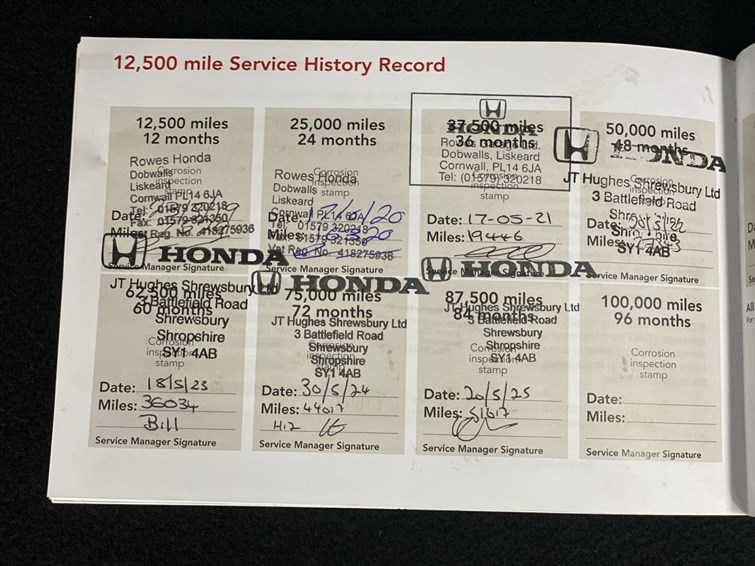 12,500 mile Service History Record
12,500 miles
12 months
Rowes Honda
Dobwalls
Liskeard
Cornwall PL14 6JA
Tel: 01579 320218
Fax: 01579 321350
Vat Reg. No. 418275936
Corrosion
inspection
stamp
Date:
Miles:
Service Manager Signature
25,000 miles
24 months
Rowes Honda
Dobwalls
Liskeard
Cornwall PL14 6JA
Tel: 01579 320218
01579 321350
Vat Reg. No. 418275936
Corrosion
inspection
stamp
Date:
Miles:
Service Manager Signature
37,500 miles
36 months
HONDA
Dobwalls, Liskeard
Cornwall, PL14 6JA
Tel: (01579) 320218
Corrosion
inspection
stamp
Date: 17-05-21
Miles: 19446
Service Manager Signature
50,000 miles
48 months
HONDA
JT Hughes Shrewsbury Ltd
3 Battlefield Road
Shrewsbury
Shropshire
SY1 4AB
Date:
Miles:
Service Manager Signature
62,500 miles
60 months
HONDA
JT Hughes Shrewsbury Ltd
3 Battlefield Road
Shrewsbury
Shropshire
SY1 4AB
Corrosion
inspection
stamp
Date: 18/5/23
Miles: 36034
Bill
Service Manager Signature
75,000 miles
72 months
HONDA
JT Hughes Shrewsbury Ltd
3 Battlefield Road
Shrewsbury
Shropshire
SY1 4AB
Corrosion
inspection
stamp
Date: 30/5/24
Miles: 44017
Service Manager Signature
87,500 miles
84 months
HONDA
JT Hughes Shrewsbury Ltd
3 Battlefield Road
Shrewsbury
Shropshire
SY1 4AB
Corrosion
inspection
stamp
Date: 20/5/25
Miles: 51617
Service Manager Signature
100,000 miles
96 months
Corrosion
inspection
stamp
Date:
Miles:
Service Manager Signature